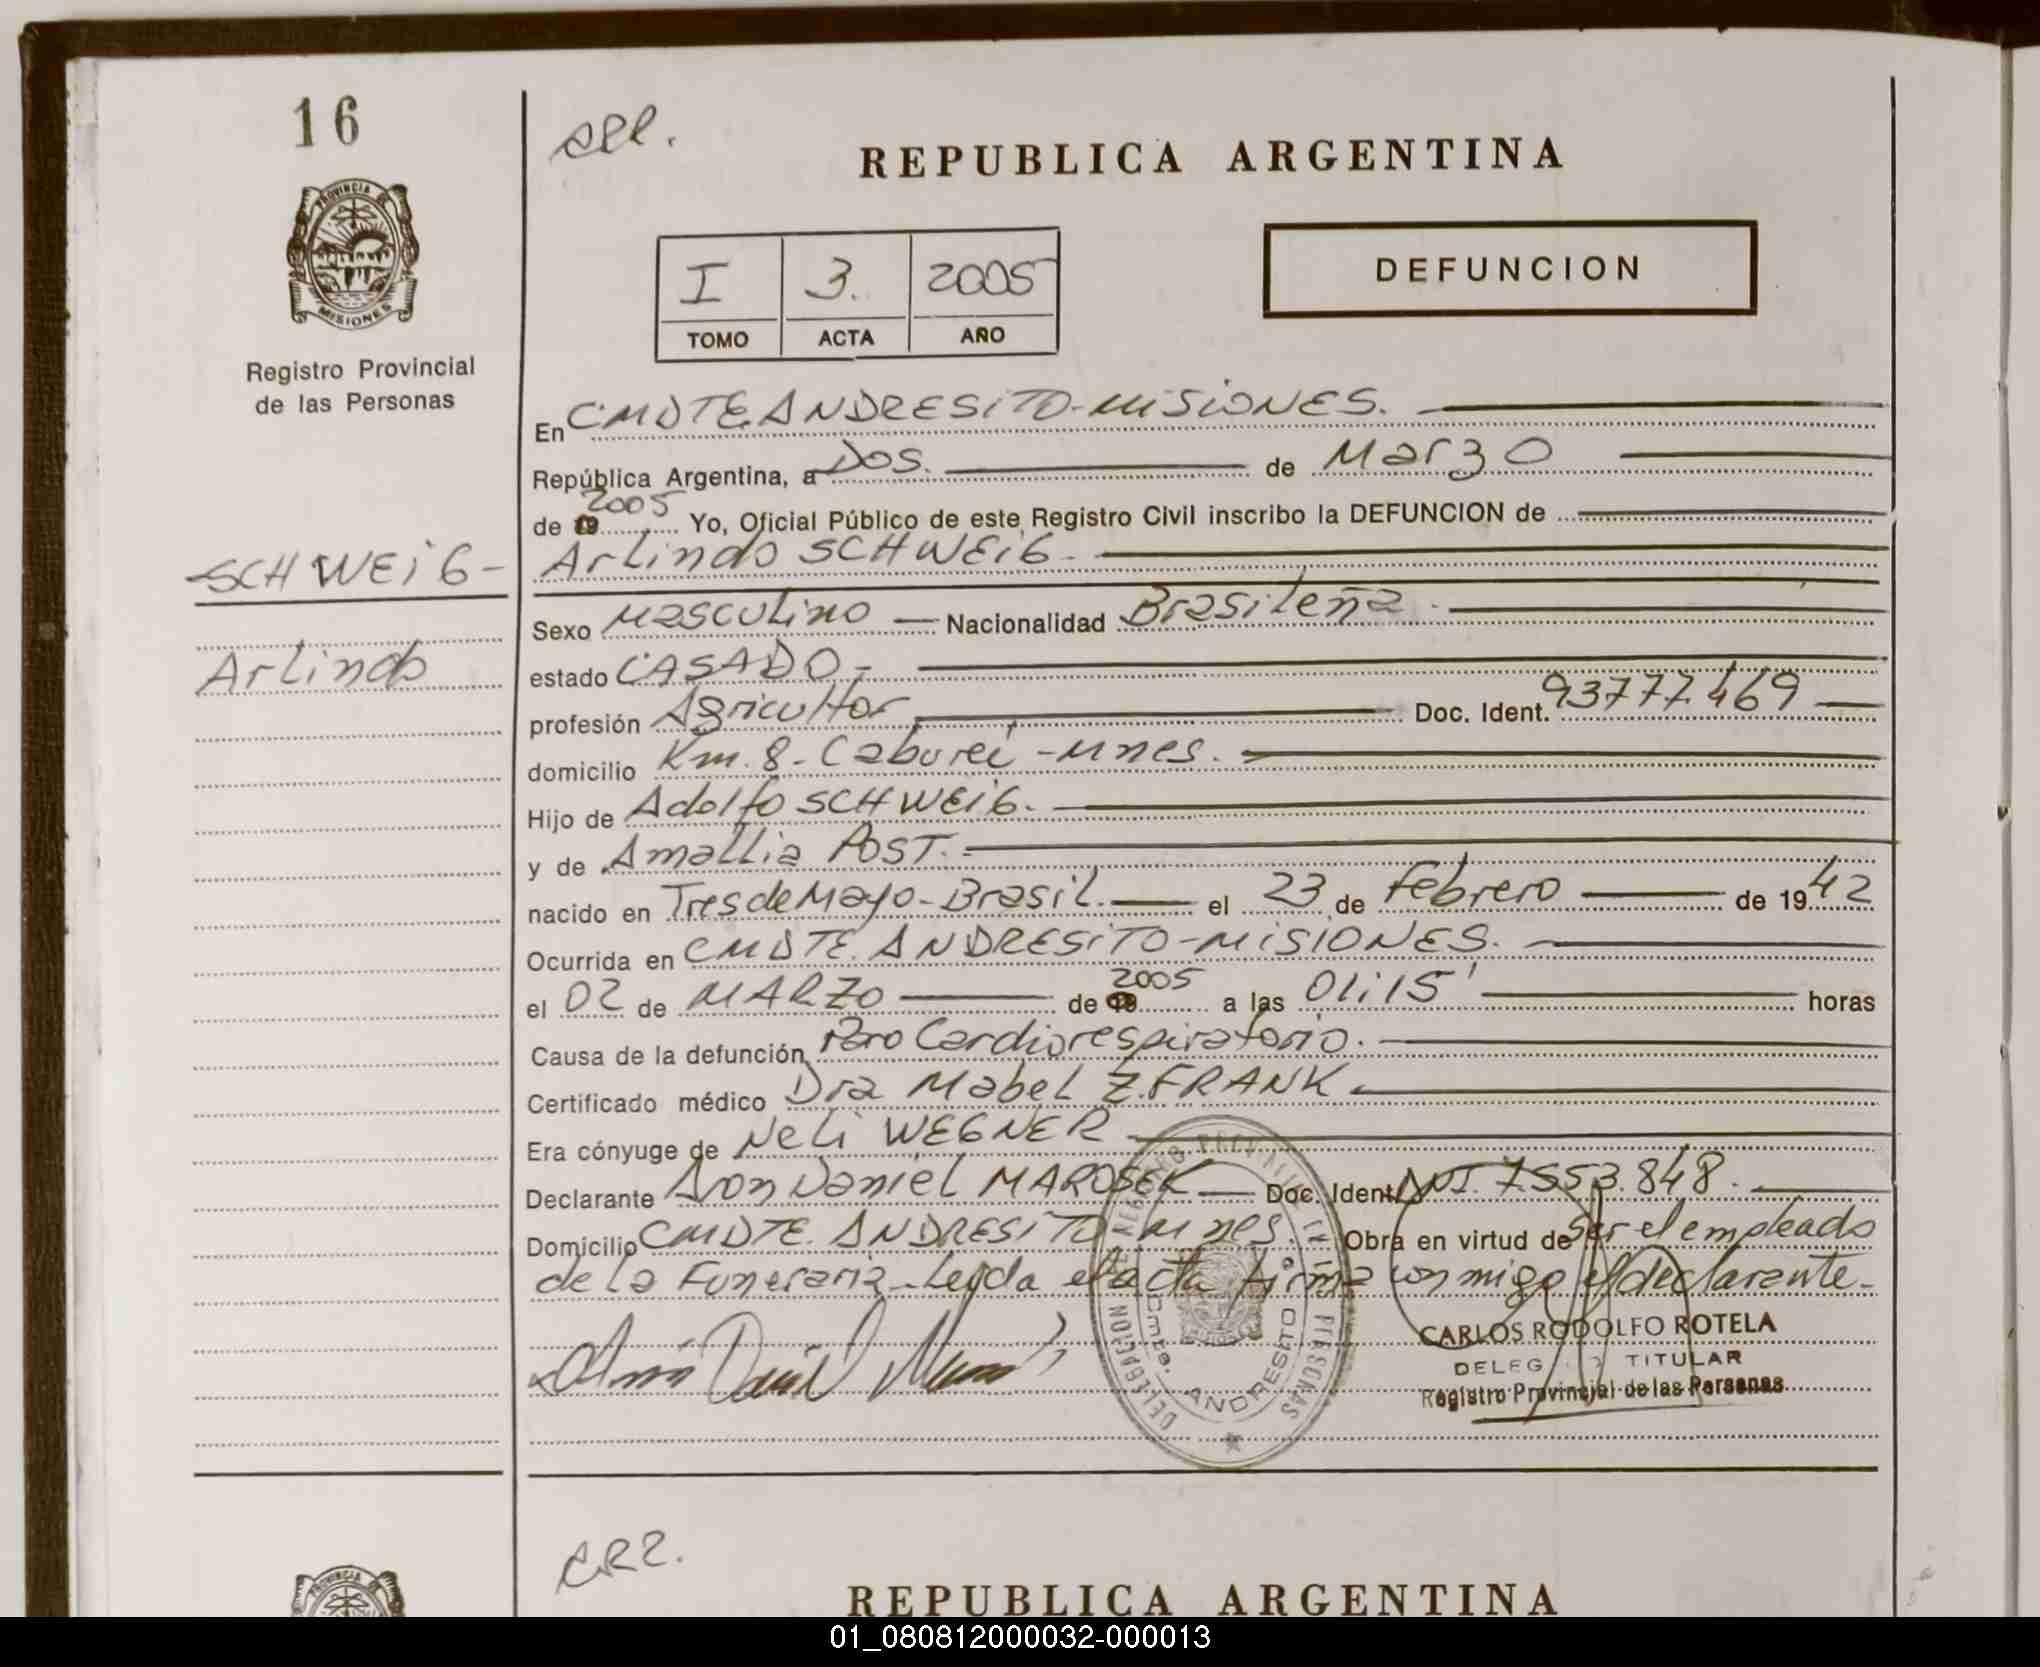 16
PROVINCIA DE
MISIONES
Registro Provincial
de las Personas
SCHWEiG-
Arlindo
REPUBLICA ARGENTINA
DEFUNCION
I 3. 2005
TOMO ACTA AÑO
En CMDTE ANDRESiTO-MiSiONES.
República Argentina, a DOS. de Marzo
de 19 2005 Yo, Oficial Público de este Registro Civil inscribo la DEFUNCION de
Arlindo SCHWEiG-
Sexo Masculino Nacionalidad Brasileña.
estado CASADO-
profesión Agricultor Doc. Ident. 93777.469
domicilio Km. 8- Caburei -Mnes.
Hijo de Adolfo SCHWEiG.
y de Amallia POST.
nacido en Tres de Mayo-Brasil. el 23 de Febrero de 1942
Ocurrida en CMDTE. ANDRESiTO-MiSIONES.
el 02 de MARZO de 19 2005 a las 01:15' horas
Causa de la defunción Paro Cardiorespiratorio.
Certificado médico Dra Mabel Z.FRANK
Era cónyuge de Neli WEGNER
Declarante Aron Daniel MAROSEK Doc. Ident. DNI. 7.553.848.
Domicilio CMDTE. ANDRESITO-Mnes. Obra en virtud de Ser el empleado
de la Funeraria-Leida el acta firma conmigo el declarante-
CARLOS RODOLFO ROTELA
DELEG TITULAR
Registro Provincial de las Personas
DELEGACION REGISTRO PROVINCIAL DE LAS PERSONAS
Cmte. ANDRESITO
PROVINCIA DE
REPUBLICA ARGENTINA
01_080812000032-000013